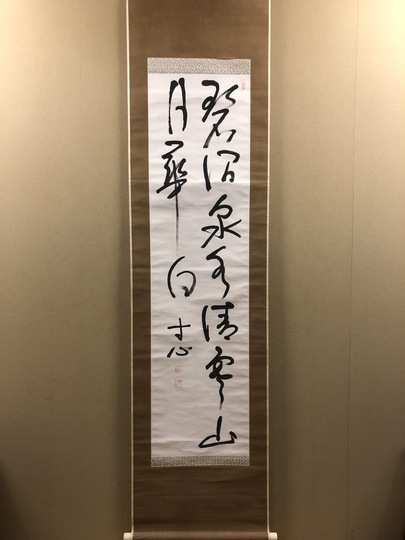 碧澗泉水清寒山
月華白 寸心